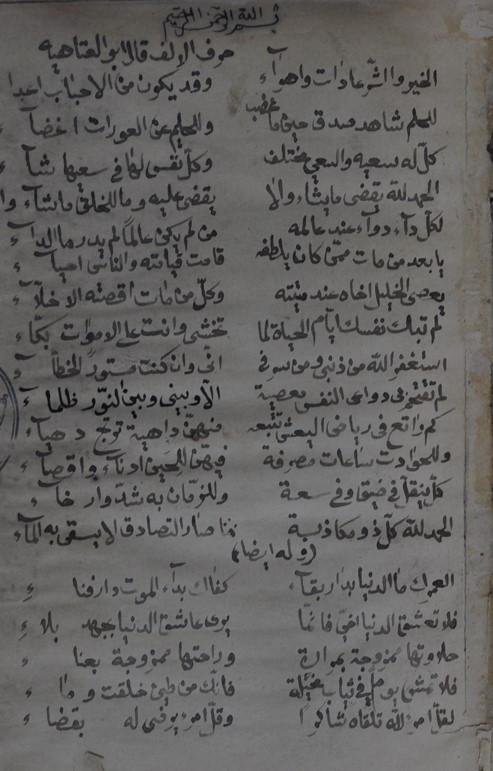 بسم الله الرحمن الرحيم
حرف الالف قال ابو العتاهيه
الخير والشر عادات واهوآء وقد يكون من الاحباب اعدا ء
للحلم شاهد صدق حين ما غضب وللحليم عن العورات اغضا ء
كل له سعيه والسعي مختلف وكل نفس لها في سعيها شآ ء
الحمد لله يقضي ما يشاء ولا يقضى عليه وما للخلق ما شآء وا
لكل دآء دوآء عند عالمه من لم يكن عالماً لم يدر ما الدآ ء
يا بعد من مات ممن كان يلطفه قامت قيامته والناس احيآ ء
يقصي الخليل اخاه عند ميتته وكل من مات اقصته الاخلآ ء
لم تبك نفسك ايام الحياة لما تخشى وانت على الاموات بكآ ء
استغفر الله من ذنبي ومن سرفي اني وان كنت مستور لخطآ ء
لم تقتحم بي دواعي النفس معصية الا وبيني وبين النور ظلمآ ء
كم راتع في رياض العيش تتبعه منهن داهية ترتج دهيآ ء
وللحوادث ساعات مصرفة فيهن للحين ادنآء واقصآ ء
كل ينقل في ضيق وفي سعة وللزمان به شد وار خآ ء
الحمد لله كل ذو مكاذبة صار التصادق لا يسقى به المآ ء
(وله ايضا)
لعمرك ما الدنيا بدار بقآء كفاك بدآء الموت دار فنا ء
فلا تعشق الدنيا اخي فانما يرى عاشق الدنيا بجهد بلا ء
حلاوتها ممزوجة بمرارة وراحتها ممزوجة بعنا ء
فلا تمش يوما في ثياب مخيلة فانك من طين خلقت وما ء
لقل امرء تلقاه شاكرا وقل امرء يرضى له بقضا ء